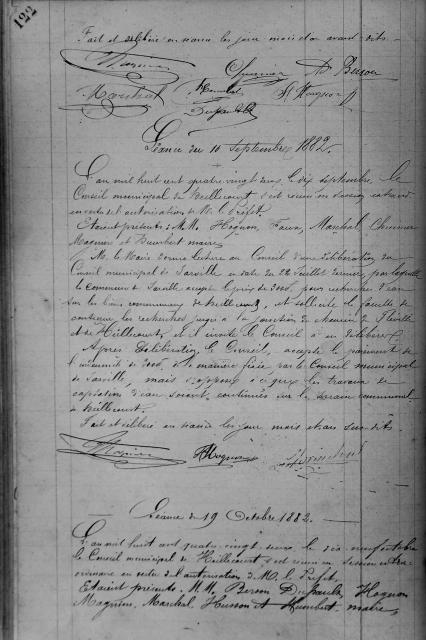 122
Fait et délibéré en séance les jour mois et an avant dits.
Magnien
Marchal
Dufault
Séance du 10 Septembre 1882.
L'an mil huit cent quatre vingt deux, le dix septembre, le
Conseil municipal de Heillecourt s'est réuni en session extraord
en vertu de l'autorisation de M. le Préfet.
Etaient présents M.M. Hognon, Marchal,
Magnien et Humbert maire
M. le Maire donne lecture au Conseil d'une délibération du
Conseil municipal de Jarville en date du 22 Juillet dernier, par laquelle
la commune de Jarville accepte le prix de 300f. pour recherches d'eau
sur les biens communaux de Heillecourt, et sollicite la faculté de
continuer les recherches jusqu'à la jonction du chemin de
et de Heillecourt, et il invite le Conseil à en délibérer.
Après délibération, le Conseil, accepte le paiement de
l'indemnité de 300f. de la manière fixée par le Conseil municipal
de Jarville, mais s'oppose à ce que les travaux de
captation d'eau soient continués sur le terrain communal
de Heillecourt.
Fait et délibéré en séance les jour mois et an sus-dits.
Hognon
Séance du 19 Octobre 1882.
L'an mil huit cent quatre-vingt deux le dix neuf octobre
le Conseil municipal de Heillecourt s'est réuni en session extra
ordinaire en vertu de l'autorisation de M. le Préfet.
Etaient présents M.M. Berson Dufault, Hognon
Magnien, Marchal, Husson et Humbert maire